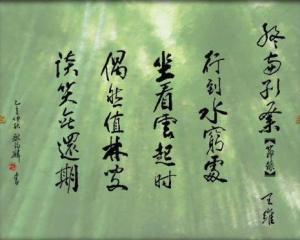 終南別業【節錄】
王維
行到水窮處
坐看雲起时
偶然值林叟
談笑无還期